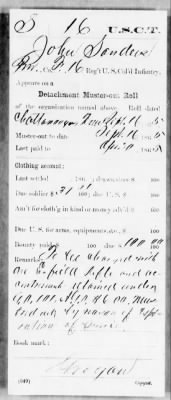 S 16 U.S.C.T.
John Sanders
Co. 16 Reg't U.S. Col'd Infantry.
Appears on a
Detachment Muster-out Roll
of the organization named above. Roll dated
Chattanooga Tenn Sept 16, 1865
Muster-out to date Sept 16, 1865
Last paid to Apr 30, 1865
Clothing account:
Last settled , 186 ; drawn since $ 100
Due soldier $ 31 100; due U.S. $ 100
Am't for cloth'g in kind or money adv'd $ 100
Due U.S. for arms, equipments, &c., $ 100
Bounty paid $ 100; due $ 100 00 100
Remarks: To be charged with
one Enfield rifle and ac-
coutrements retained under
G.O. 101 A.G.O. $6.00. Mus-
tered out by reason of expi-
ration of service
Book mark:
(649) Copyist.